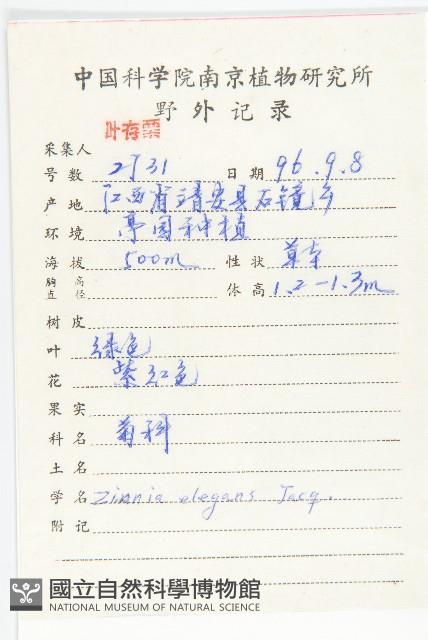 中国科学院南京植物研究所
野外记录
叶存粟
采集人
号数 2731 日期 96.9.8
产地 江西省靖安县石镜乡
环境 亭园种植
海拔 500m 性状 草本
胸高直径 体高 1.2-1.3m
树皮
叶 绿色
花 紫红色
果实
科名 菊科
土名
学名 Zinnia elegans Jacq.
附记
國立自然科學博物館
NATIONAL MUSEUM OF NATURAL SCIENCE